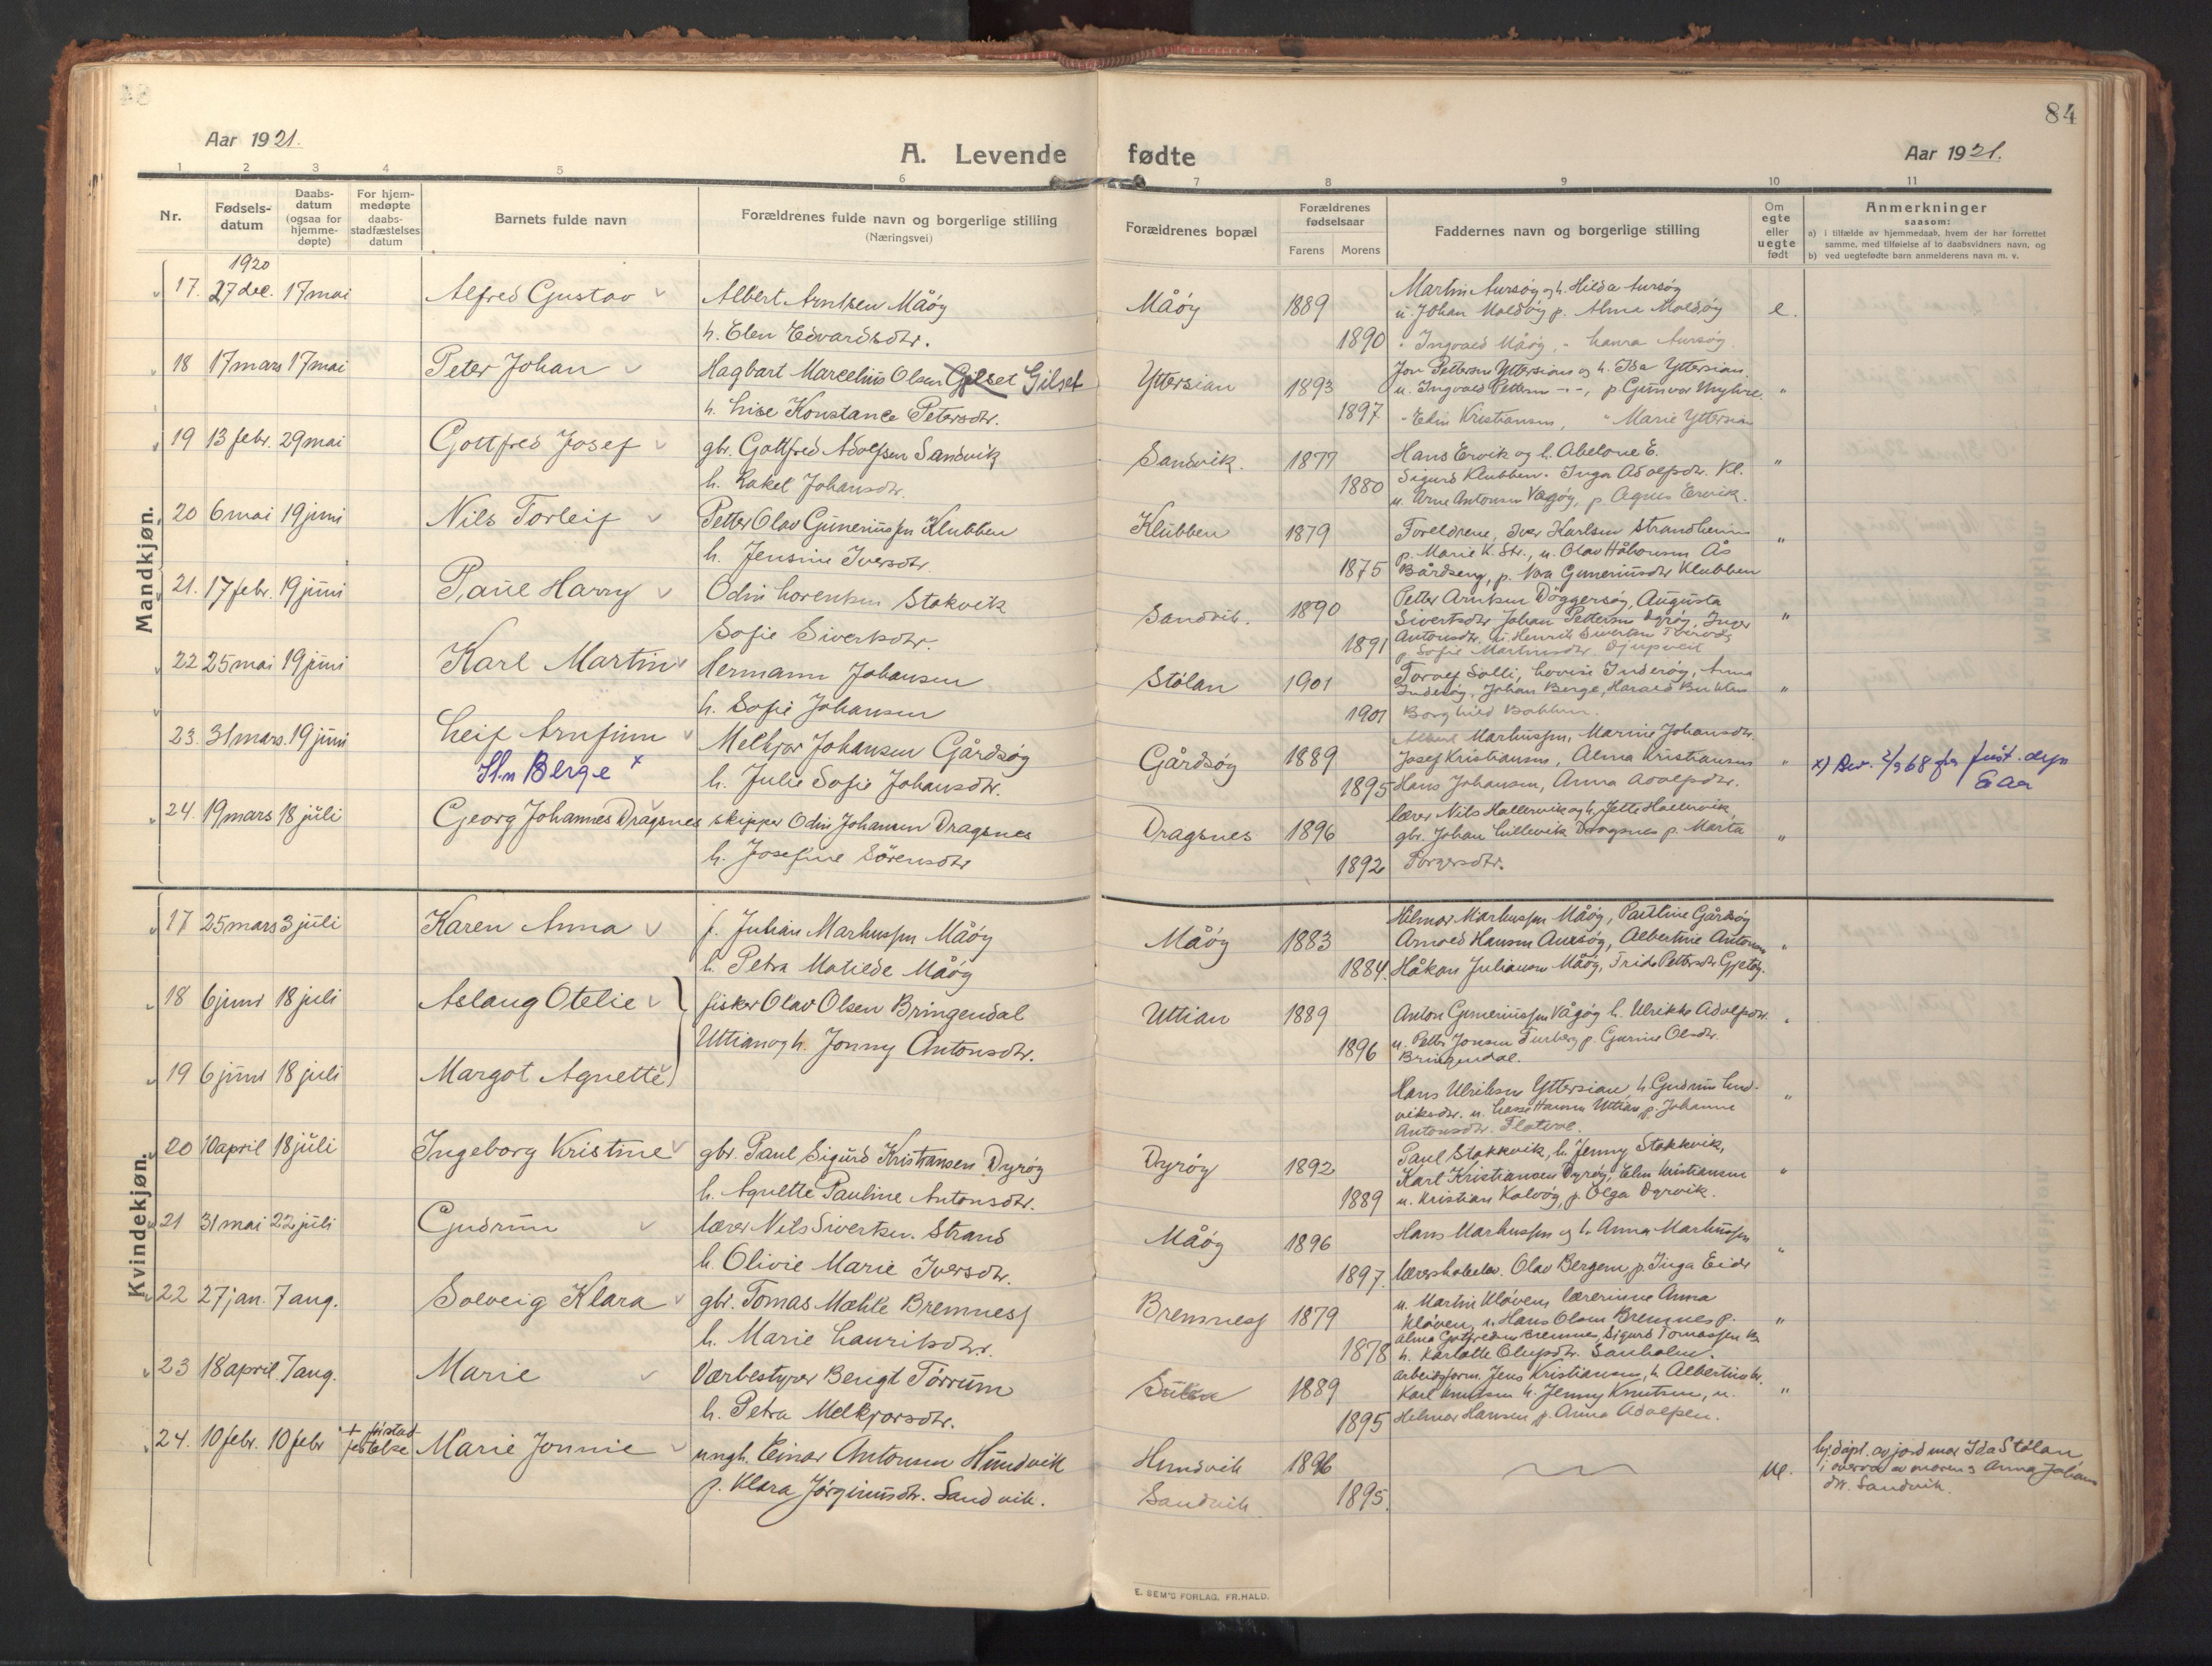 84
Aar 1921.
A. Levende fødte
Aar 1921.
1 2 3 4 5 6 7 8 9 10 11
Nr.
Fødsels-
datum
Daabs-
datum
(ogsaa for
hjemme-
døpte)
For hjem-
medøpte
daabs-
stadfæstelses
datum
Barnets fulde navn
Forældrenes fulde navn og borgerlige stilling
(Næringsvei)
Forældrenes bopæl
Forældrenes
fødselsaar
Farens Morens
Faddernes navn og borgerlige stilling
Om
egte
eller
uegte
født
Anmerkninger
saasom:
a) i tilfælde av hjemmedaab, hvem der har forrettet
samme, med tilføielse af to daabsvidners navn, og
b) ved uegtefødte barn anmelderens navn m. v.
Mandkjøn.
1920
17. 27 dec. 17 mai Alfred Gustav Albert Arntsen Måøy
h. Elen Edvardsdtr.
Måøy 1889
1890
Martin Aursøy og h. Hilda Aursøy
u. Johan Moldøy p. Alma Moldøy
" Ingvald Måøy, " Laura Aursøy
e.
18 17 mars 17 mai Peter Johan Hagbart Marcelius Olsen Gilset Gilset
h. Lise Konstance Petersdtr.
Yttersian 1893
1897
Jon Petterson Yttersian og h. Ida Yttersian.
u. Ingvald Petterson - - , p. Gunvor Myhre.
" Edin Kristiansen, " Marie Yttersian
"
19 13 febr. 29 mai Gottfred Josef gbr. Gottfred Adolfsen Sandvik
h. Rakel Johansdtr.
Sandvik. 1877
1880
Hans Ervik og h. Abelone E.
Sigurd Klubben. Inga Adolfsdtr. Kl.
u. Arne Antonsen Vågøy, p. Agnes Ervik.
"
20 6 mai 19 juni Nils Torleif Petter Olav Guneriussen Klubben
h. Jensine Iversdtr.
Klubben 1879
1875
Foreldrene, Iver Karlsen Strandheim
p. Marie K. Str., u. Olav Håkonsen Ås
Bårdseng, p. Nora Guneriusdtr Klubben
"
21. 17 febr. 19 juni Paul Harry Odin Lorentsen Stokvik
Sofie Sivertsdtr.
Sandvik. 1890
1891
Petter Arntsen Doggersøy, Augusta
Sivertsdtr Johan Petterson Dyrøy, Inger
Antonsdtr. u. Henrik Sivertsen
p. Sofie Martinusdtr Djupveit
"
22 25 mai 19 juni Karl Martin Hermann Johansen
h. Sofie Johansen
Stølan 1901
1901
Torolf Solli, Lovise Inderøy, Anna
Inderøy, Johan Berge, Harald
Borghild Bakken.
"
23. 31 mars. 19 juni Leif Arnfinn
Sl.n Berge x
Melkjor Johansen Gårdsøy
h. Julie Sofie Johansdtr.
Gårdsøy 1889
1895
Markussen, Marine Johansdtr.
Josef Kristiansen, Alma Kristiansen
Hans Johansen, Anna Adolfsdtr.
"
x) Bev. 2/9 68 fra just. dep
E Aa
24. 19 mars 18 juli Georg Johannes Dragsnes skipper Odin Johansen Dragsnes
h. Josefine Sørensdtr
Dragsnes 1896
1892
lærer Nils Hallervik og h. Jette Hallervik,
gbr. Johan Lillevik Dragsnes p. Marta
Torgersdtr.
"
Kvindekjøn.
17 25 mars 3 juli Karen Anna f. Julian Markussen Måøy
h. Petra Matilde Måøy
Måøy 1883
1884.
Hilmar Markussen Måøy, Pauline Gårdsøy
Arnold Hansen Aursøy, Albertine Antonsen
Håkon Juliansen Måøy, Frida Pettersdtr Gjetøy.
"
18 6 juni 18 juli Aslaug Otelie fisker Olav Olsen Bringendal
Uttian og h. Jonny Antonsdtr.
Uttian 1889
1896
Anton Guneriussen Vågøy h. Ulrikke Adolfsdtr.
u. Petter Jonsen Furberg p. Gurine Olsdtr.
Bringendal.
"
19 6 juni 18 juli Margot Agnette
Hans Ulriksen Yttersian h. Gudrun Lud-
viksdtr. u. Lasse Hansen Uttian p. Johanne
Antonsdtr. Flatval.
"
20 10 april 18 juli Ingeborg Kristine gbr. Paul Sigurd Kristiansen Dyrøy
h. Agnette Pauline Antonsdtr.
Dyrøy 1892
1889
Paul Stokkvik, h. Jenny Stokkvik,
Karl Kristiansen Dyrøy, Elen Kristiansen
u. Kristian Kalvøy, p. Olga Dyrvik.
"
21 31 mai 22 juli Gudrun lærer Nils Sivertsen. Strand
h. Olivie Marie Iversdtr.
Måøy 1896
1897.
Hans Markussen og h. Anna Markussen
lærerskoleelev. Olav Bergem, p. Inga Eide
"
22 27 jan. 7 aug. Solveig Klara gbr. Tomas Mæhle Bremnes
h. Marie Lauritsdtr.
Bremnes 1879
1878
u. Martin Kløven, lærerinne Anna
Kløven, u. Hans Olsen Bremnes p.
Alma Gotfredsen Bremnes, Sigurd Tomassen Br.
h. Karlotte Olufsdtr. Sanholm.
"
23 18 april 7 aug. Marie Værbestyrer Bengt Tørrum
h. Petra Melkjorsdtr.
Sula 1889
1895
arbeidsform. Jens Kristiansen, h. Albertine Kr.
Karl Knutsen h. Jenny Knutsen, u.
Helmer Hansen p. Anna Adolfsen.
"
24. 10 febr. 10 febr + f. istad-
festelse Marie Jonnie ungk. Einar Antonsen Hundvik
p. Klara Jørginusdtr. Sandvik.
Hundvik
Sandvik
1896
1895.
ue.
hj.døpt. av jordmor Ida Stølan
i overvær av moren og Anna Johans
dtr. Sandvik.
E. SEM'S FORLAG, FR.HALD.